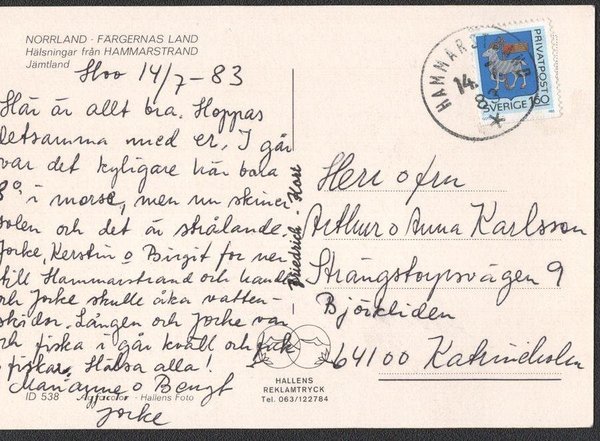 NORRLAND - FÄRGERNAS LAND
Hälsningar från HAMMARSTRAND
Jämtland
14/7-83
Här är allt bra. Hoppas
detsamma med er. I går
var det kyligare här bara
8° i morse, men nu skiner
solen och det är strålande.
Jocke, Kerstin o Birgit for ner
till Hammarstrand och
och Jocke skulle åka vatten-
skidor. Lången och Jocke var
och fiska i går kväll och fick
fiskar. Hälsa alla!
Marianne o Bengt
Jocke
ID 538 Agfacolor - Hallens Foto
Friedrich-Karl
HALLENS
REKLAMTRYCK
Tel. 063/122784
HAMMARS
14.
83
PRIVATPOST
SVERIGE 160
Herr o fru
Arthur o Anna Karlsson
Strängstorpsvägen 9
Björkliden
64100 Katrineholm